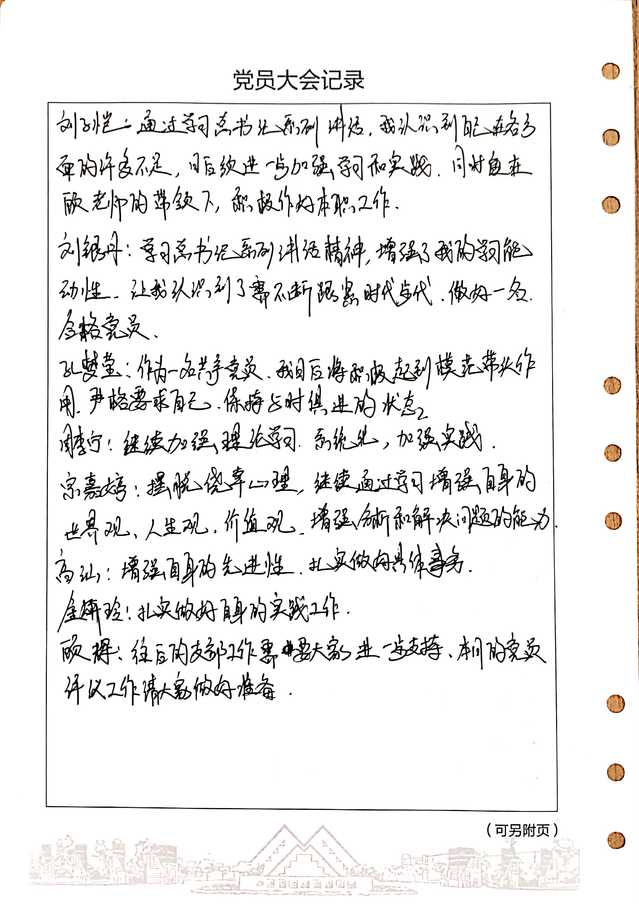 党员大会记录
刘子恺：通过学习总书记系列讲话，我认识到自己在各方
面的许多不足，日后续进一步加强学习和实践．同时负在
欧老师的带领下，积极作好本职工作．
刘银丹：学习总书记系列讲话精神，增强了我的学习能
动性．让我认识到了需不断跟紧时代步伐．做好一名
合格党员．
孔梦莹：作为一名共产党员．我日后将积极起到模范带头作
用．严格要求自己．保持与时俱进的状态。
周李宁：继续加强理论学习．系统化，加强实践．
宗嘉婷：摆脱侥幸心理，继续通过学习增强自身的
世界观、人生观、价值观．增强分析和解决问题的能力．
高汕：增强自身的先进性．扎实做好具体事务．
金妍玲：扎实做好自身的实践工作．
顾辉：往后的支部工作需要大家进一步支持、本月的党员
评议工作请大家做好准备．
（可另附页）